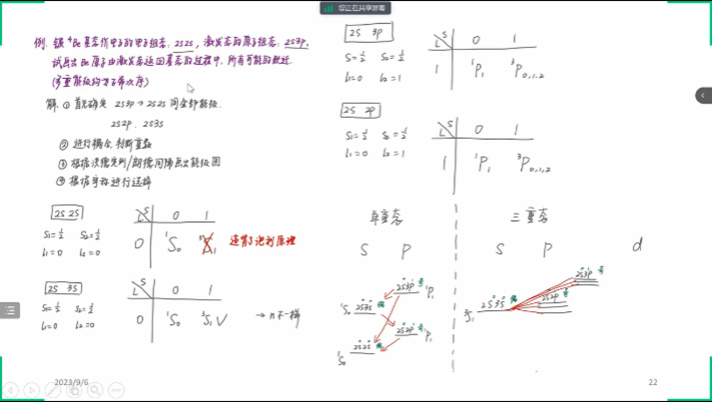 您正在共享屏幕
例. 铍 ⁴Be 基态价电子的电子组态: 2s2s, 激发态的原子组态: 2s3p,
试画出Be原子由激发态返回基态的过程中, 所有可能的跃迁
(多重能级均为正常次序)
解: ① 首先确定 2s3p → 2s2s 间全部能级.
2s2p. 2s3s
② 进行耦合, 判断重数
③ 根据洪德定则/朗德间隔画出能级图
④ 根据宇称进行选择
2s 2s
S₁=½ S₂=½
l₁=0 l₂=0
L S 0 1
0 ¹S₀ ³S₁
违背了泡利原理
2s 3s
S₁=½ S₂=½
l₁=0 l₂=0
L S 0 1
0 ¹S₀ ³S₁ √ → n不一样
2s 3p
S₁=½ S₂=½
l₁=0 l₂=1
L S 0 1
1 ¹P₁ ³P₀,₁,₂
2s 2p
S₁=½ S₂=½
l₁=0 l₂=1
L S 0 1
1 ¹P₁ ³P₀,₁,₂
单重态 三重态
S P S P d
2s3p 奇 ¹P₁
¹S₀ 2s3s 偶
2s2p 奇 ¹P₁
¹S₀ 2s2s 偶
2s3p 奇
2s2p 奇
³S₁ 2s3s 偶
2023/9/6
22